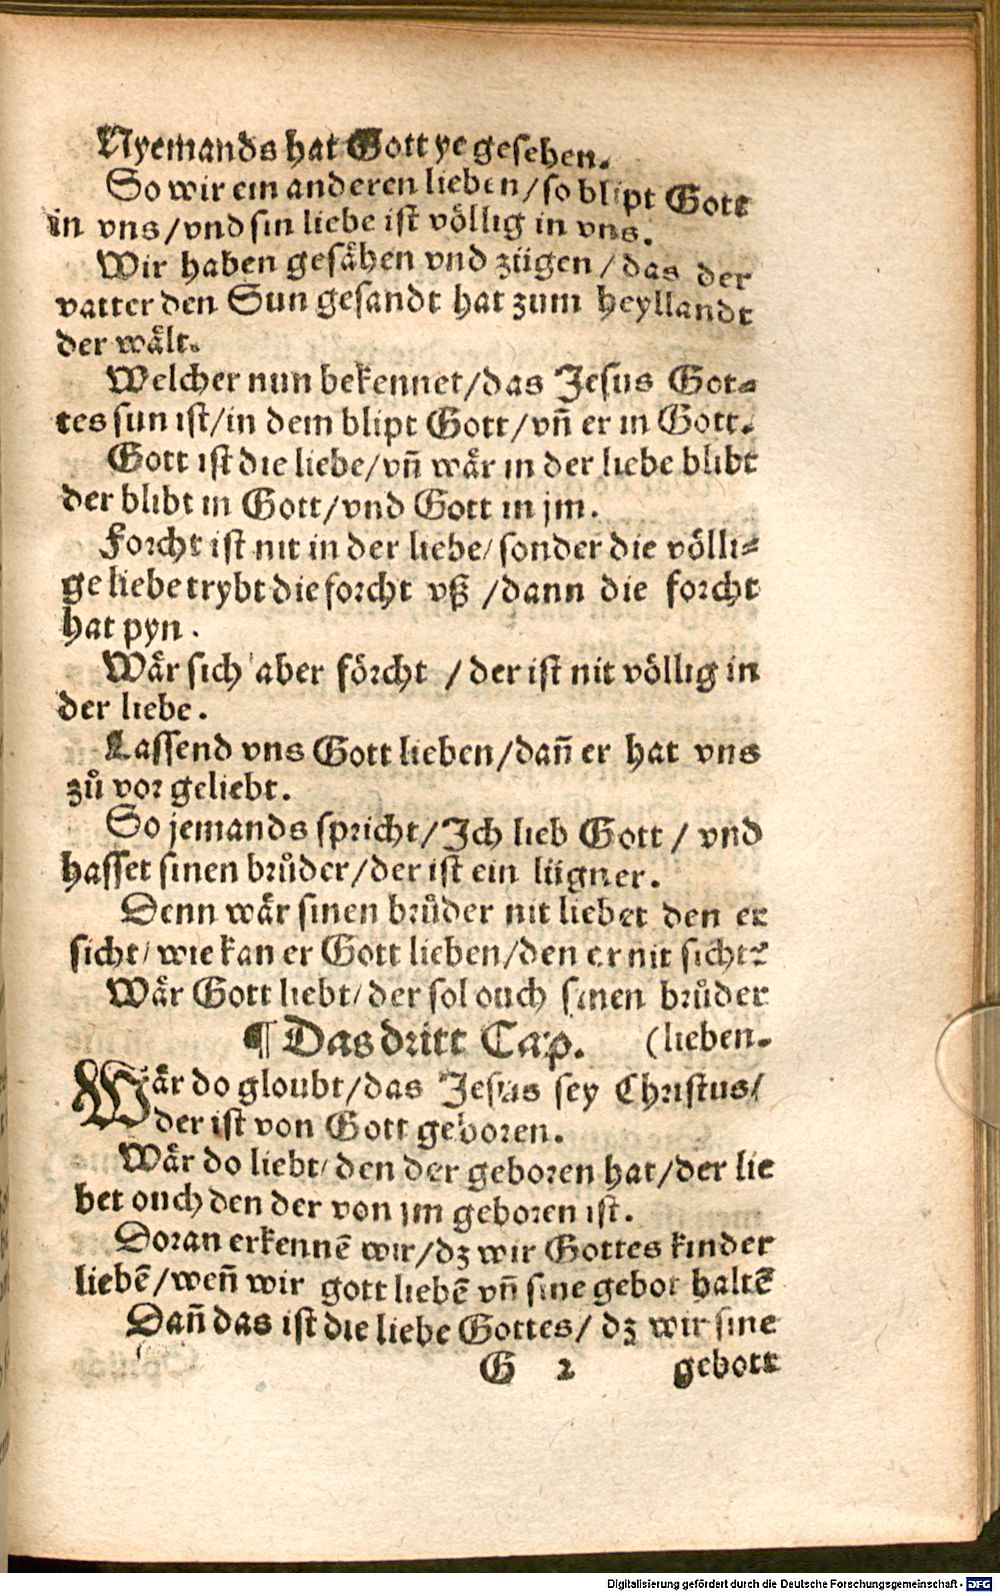 Nyemands hat Gott ye gesehen.
So wir ein anderen lieben/so blipt Gott
in vns/vnd sin liebe ist völlig in vns.
Wir haben gesähen vnd zügen/das der
vatter den Sun gesandt hat zum heyllandt
der wält.
Welcher nun bekennet/das Jesus Got⸗
tes sun ist/in dem blipt Gott/vñ er in Gott.
Gott ist die liebe/vñ wär in der liebe blibt
der blibt in Gott/vnd Gott in jm.
Forcht ist nit in der liebe/sonder die völli⸗
ge liebe trybt die forcht vß /dann die forcht
hat pyn.
Wär sich aber förcht /der ist nit völlig in
der liebe.
Lassend vns Gott lieben/dañ er hat vns
zů vor geliebt.
So jemands spricht/Ich lieb Gott / vnd
hasset sinen brůder/der ist ein lügner.
Denn wär sinen brůder nit liebet den er
sicht/wie kan er Gott lieben/den er nit sicht?
Wär Gott liebt/der sol ouch sinen brůder
¶ Das dritt Cap. (lieben.
Wär do gloubt/das Jesus sey Christus/
der ist von Gott geboren.
Wär do liebt/den der geboren hat/der lie
bet ouch den der von jm geboren ist.
Doran erkennē wir/dz wir Gottes kinder
liebē/weñ wir gott liebē vñ sine gebot haltē
Dañ das ist die liebe Gottes/ dz wir sine
G 2 gebott
Digitalisierung gefördert durch die Deutsche Forschungsgemeinschaft - DFG